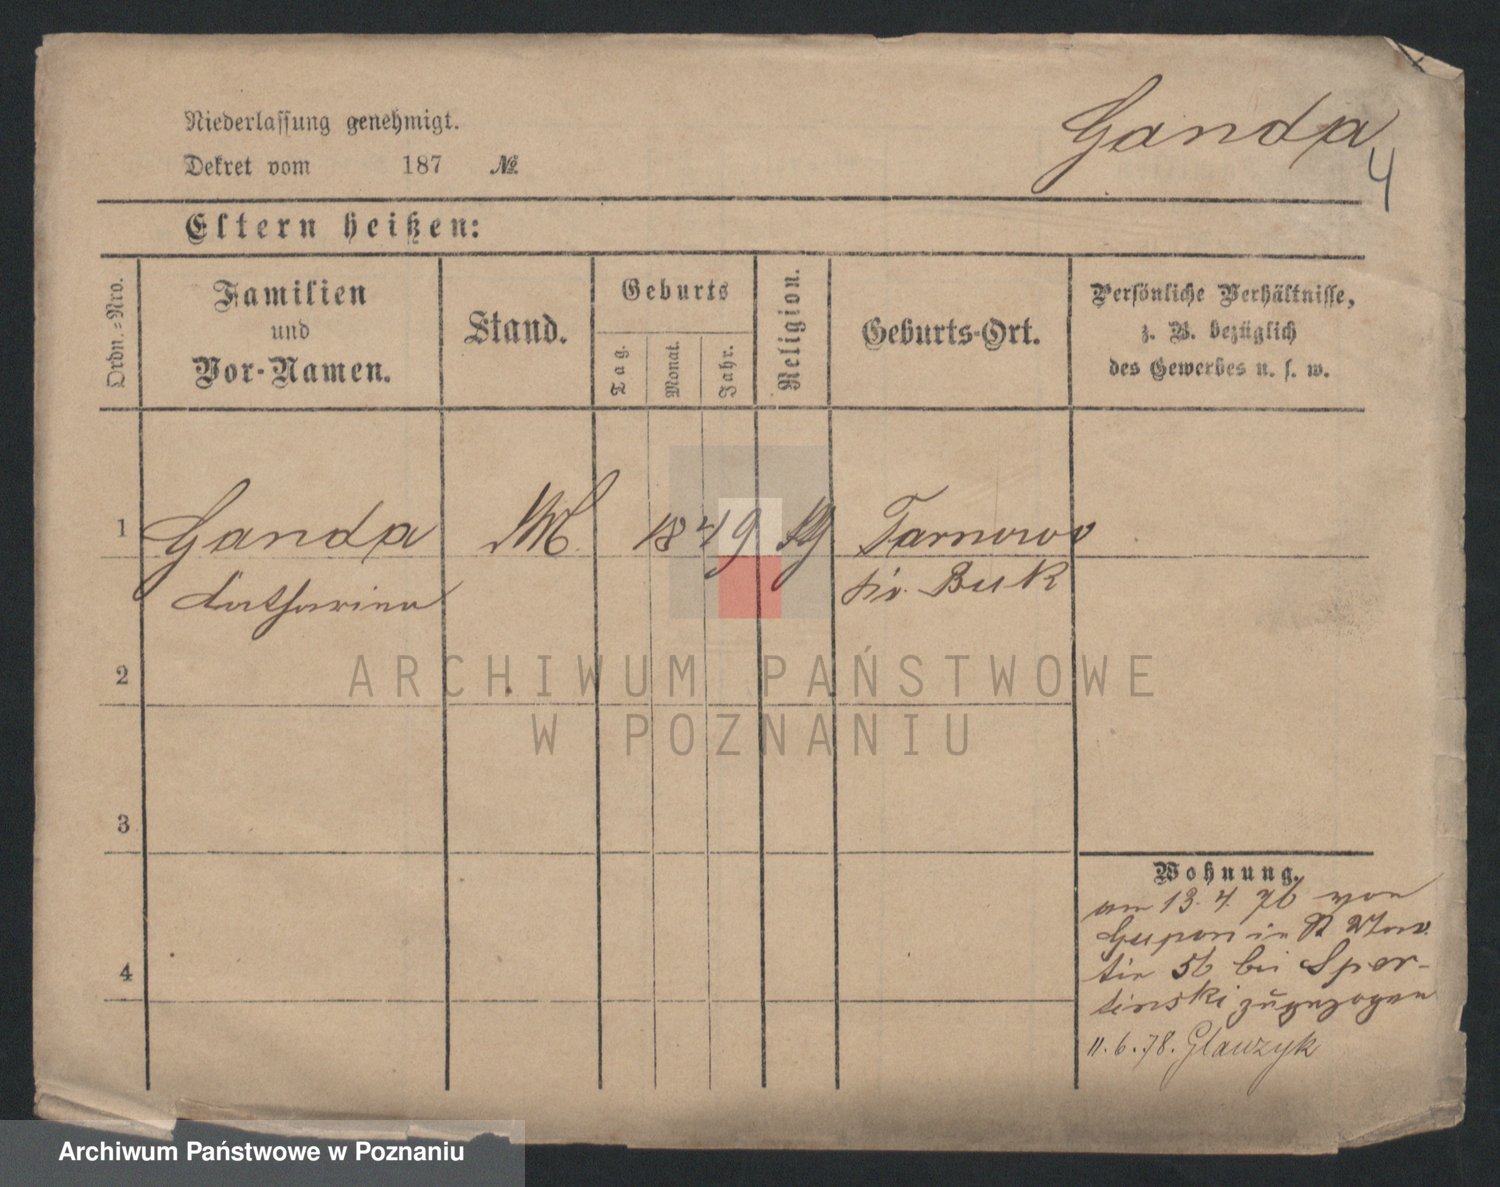 Niederlassung genehmigt.
Ganda
Dekret vom 187 №
4
Eltern heißen:
Ordn.-Nro.
Familien und Vor-Namen.
Stand.
Geburts
Tag.
Monat.
Jahr.
Religion.
Geburts-Ort.
Persönliche Verhältnisse,
z. B. bezüglich
des Gewerbes u. s. w.
1 Ganda M. 1849 Tarnowo
Katharina Kr. Buk
2
ARCHIWUM PAŃSTWOWE
W POZNANIU
3
Wohnung.
am 13. 4. 76 von
in St Mar
tin 56 bei
zugezogen
4
11. 6. 78. Glauzyk
Archiwum Państwowe w Poznaniu